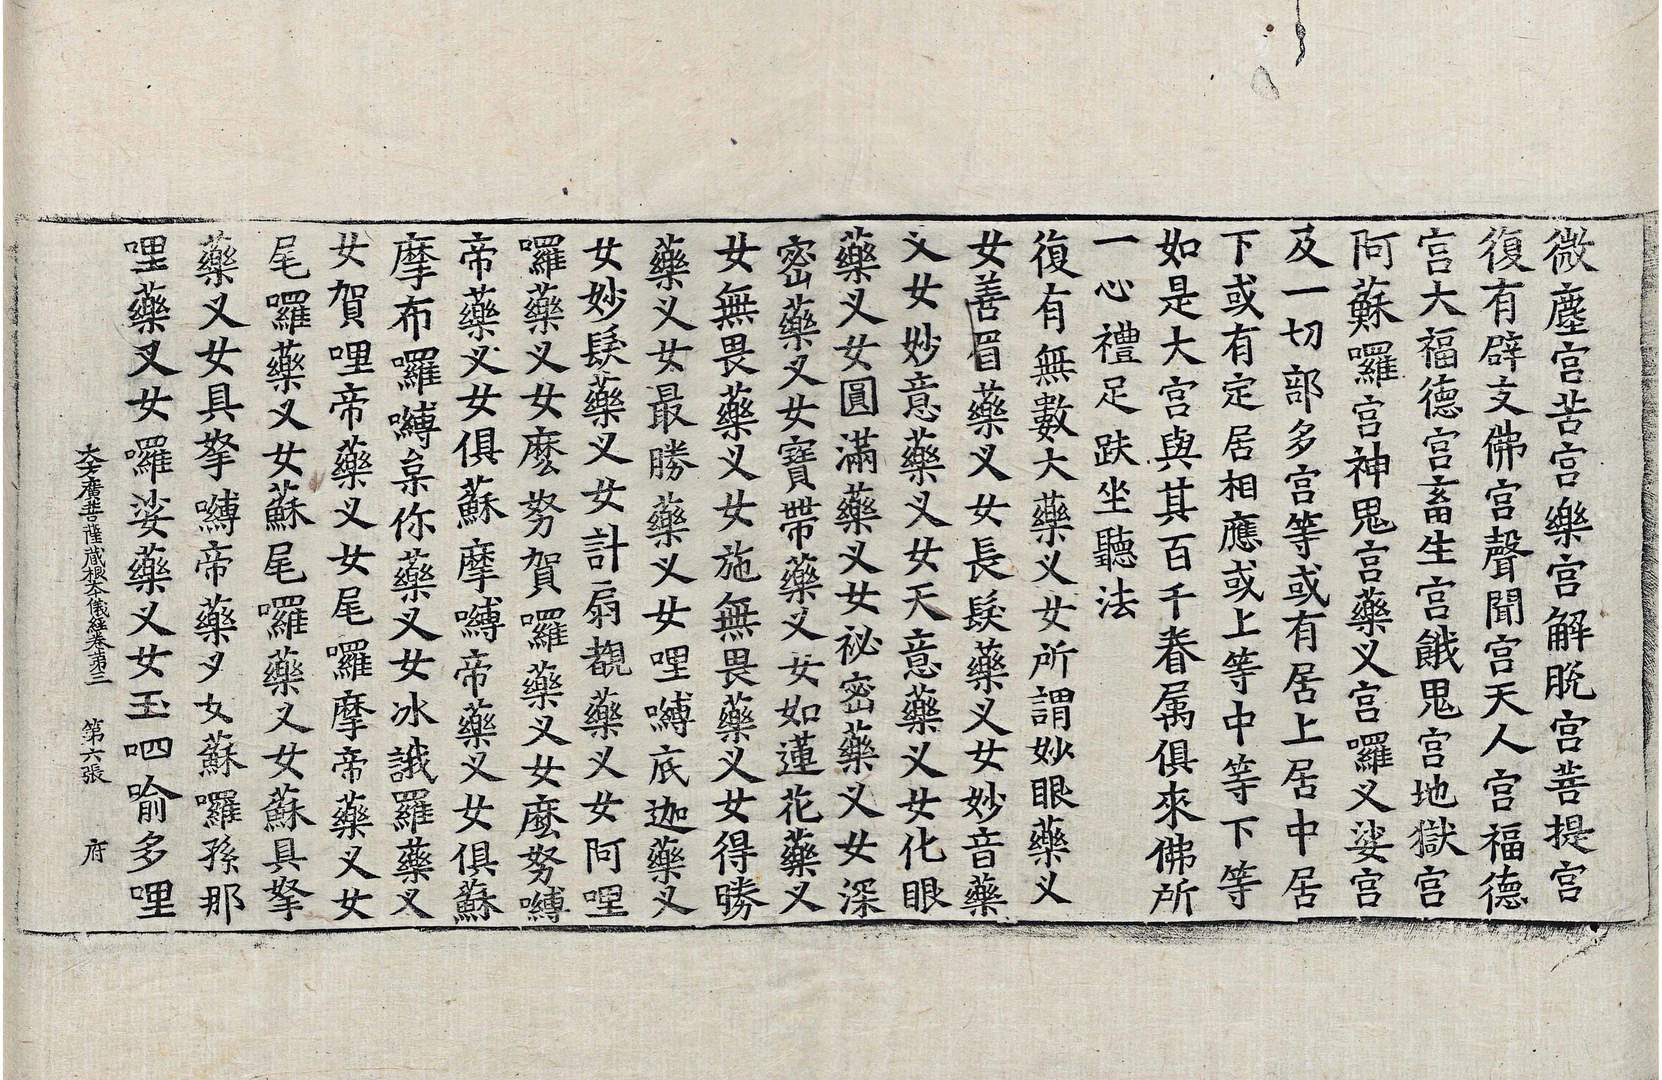 微塵宮苦宮樂宮解脫宮菩提宮
復有辟支佛宮聲聞宮天人宮福德
宮大福德宮畜生宮餓鬼宮地獄宮
阿蘇囉宮神鬼宮藥叉宮囉叉娑宮
及一切部多宮等或有居上居中居
下或有定居相應或上等中等下等
如是大宮與其百千眷属俱來佛所
一心禮足趺坐聽法
復有無數大藥叉女所謂妙眼藥叉
女善眉藥叉女長髮藥叉女妙音藥
叉女妙意藥叉女天意藥叉女化眼
藥叉女圓滿藥叉女祕密藥叉女深
密藥叉女寶帶藥叉女如蓮花藥叉
女無畏藥叉女施無畏藥叉女得勝
藥叉女最勝藥叉女哩嚩底迦藥叉
女妙髮藥叉女計扇覩藥叉女阿哩
囉藥叉女麽努賀囉藥叉女麽努嚩
帝藥叉女俱蘇摩嚩帝藥叉女俱蘇
摩布囉嚩枲你藥叉女冰誐羅藥叉
女賀哩帝藥叉女尾囉摩帝藥叉女
尾囉藥叉女蘇尾囉藥叉女蘇具拏
藥叉女具拏嚩帝藥叉女蘇囉孫那
哩藥叉女囉娑藥叉女玉呬喻多哩
大方廣菩薩藏根本儀經卷第三 第六張 府